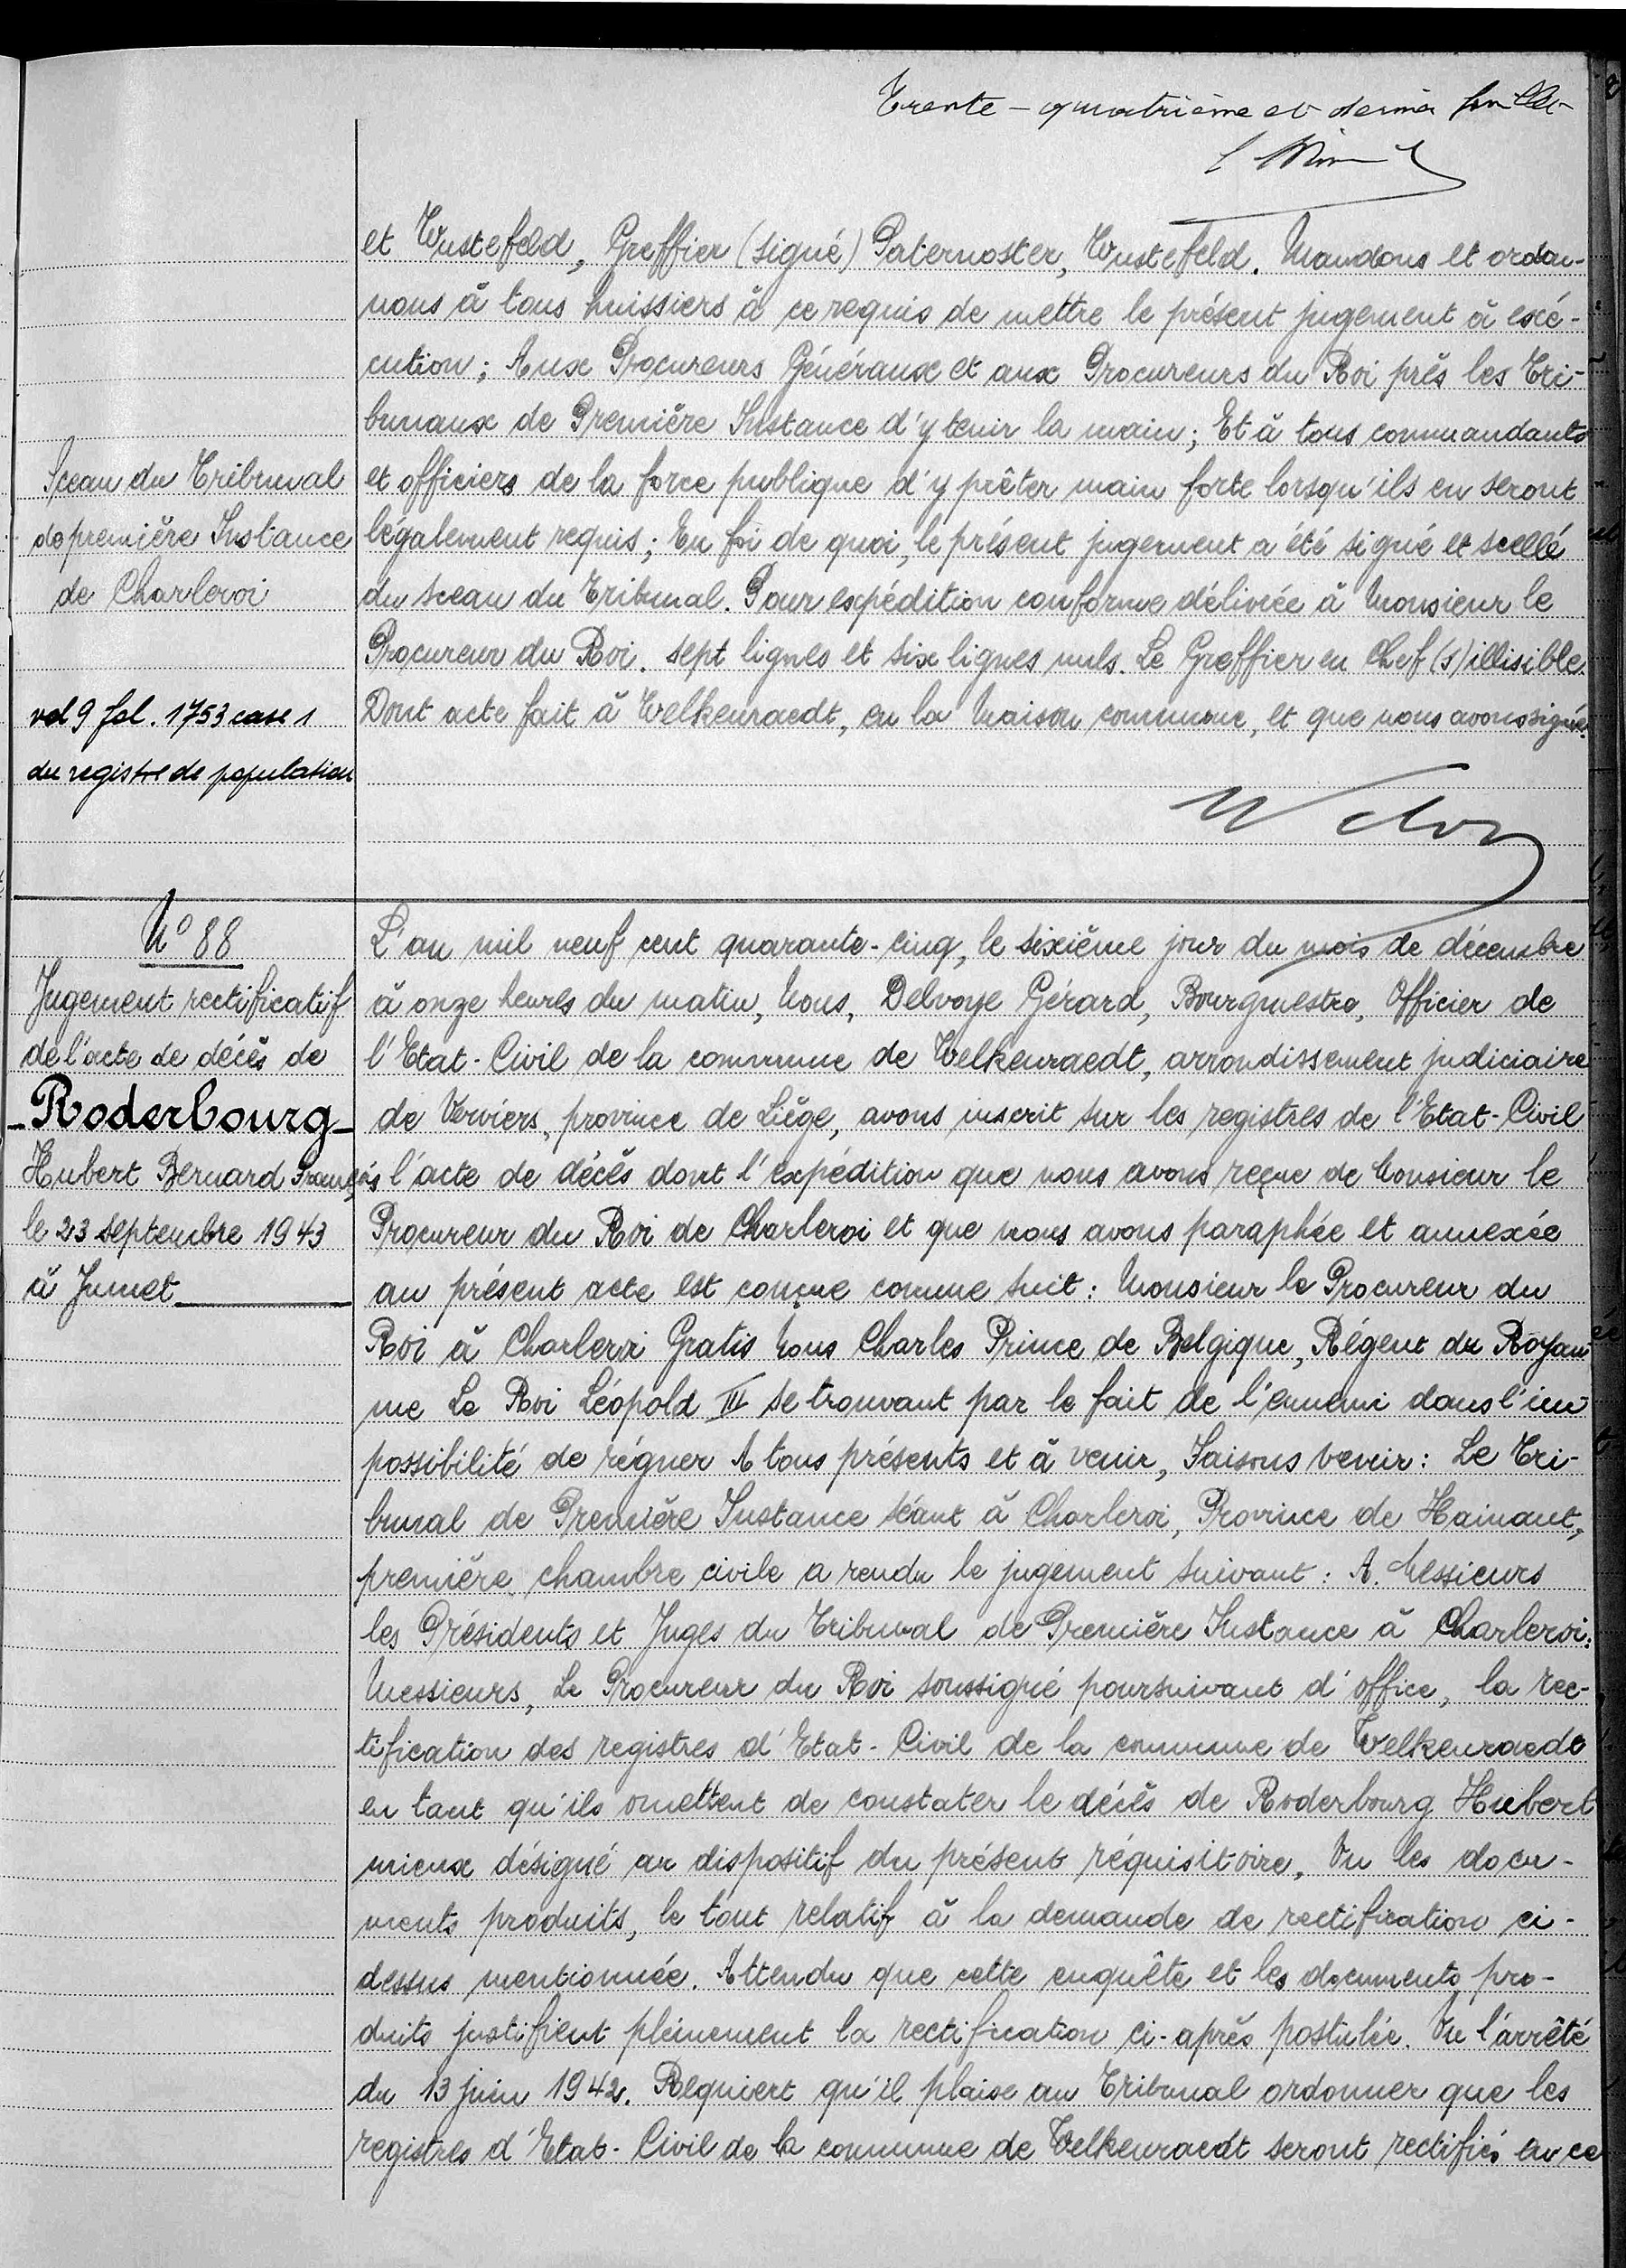 Trente-quatrième et dernier feuillet
et Wustefeld, Greffier (signé) Paternoster, Wustefeld. Mandons et ordon-
nons à tous huissiers à ce requis de mettre le présent jugement à exé-
cution; Aux Procureurs Généraux et aux Procureurs du Roi près les Tri-
bunaux de Première Instance d'y tenir la main; Et à tous commandants
et officiers de la force publique d'y prêter main forte lorsqu'ils en seront
légalement requis; En foi de quoi, le présent jugement a été signé et scellé
du sceau du Tribunal. Pour expédition conforme délivrée à Monsieur le
Procureur du Roi. sept lignes et six lignes nuls. Le Greffier en Chef (s) illisible.
Dont acte fait à Welkenraedt, en la Maison commune, et que nous avons signé.
Sceau du Tribunal
de première Instance
de Charleroi
vol 9 fol. 1753 case 1
du registre de population
N° 88
Jugement rectificatif
de l'acte de décès de
Roderbourg
Hubert Bernard François
le 23 septembre 1943
à Jumet
L'an mil neuf cent quarante-cinq, le sixième jour du mois de décembre
à onze heures du matin, Nous, Delvoye Gérard, Bourgmestre, Officier de
l'Etat-Civil de la commune de Welkenraedt, arrondissement judiciaire
de Verviers, province de Liège, avons inscrit sur les registres de l'Etat-Civil
l'acte de décès dont l'expédition que nous avons reçue de Monsieur le
Procureur du Roi de Charleroi et que nous avons paraphée et annexée
au présent acte est conçue comme suit: Monsieur le Procureur du
Roi à Charleroi Gratis Nous Charles Prince de Belgique, Régent du Royau-
me Le Roi Léopold III se trouvant par le fait de l'ennemi dans l'im-
possibilité de régner A tous présents et à venir, Faisons venir: Le Tri-
bunal de Première Instance séant à Charleroi, Province de Hainaut,
première chambre civile a rendu le jugement suivant: A. Messieurs
les Présidents et Juges du Tribunal de Première Instance à Charleroi:
Messieurs, Le Procureur du Roi soussigné poursuivant d'office, la rec-
tification des registres d'Etat-Civil de la commune de Welkenraedt
en tant qu'ils omettent de constater le décès de Roderbourg Hubert
mieux désigné au dispositif du présent réquisitoire, Vu les docu-
ments produits, le tout relatif à la demande de rectification ci-
dessus mentionnée. Attendu que cette enquête et les documents pro-
duits justifient pleinement la rectification ci-après postulée. Vu l'arrêté
du 13 juin 1942. Requiert qu'il plaise au Tribunal ordonner que les
registres d'Etat-Civil de la commune de Welkenraedt seront rectifiés en ce